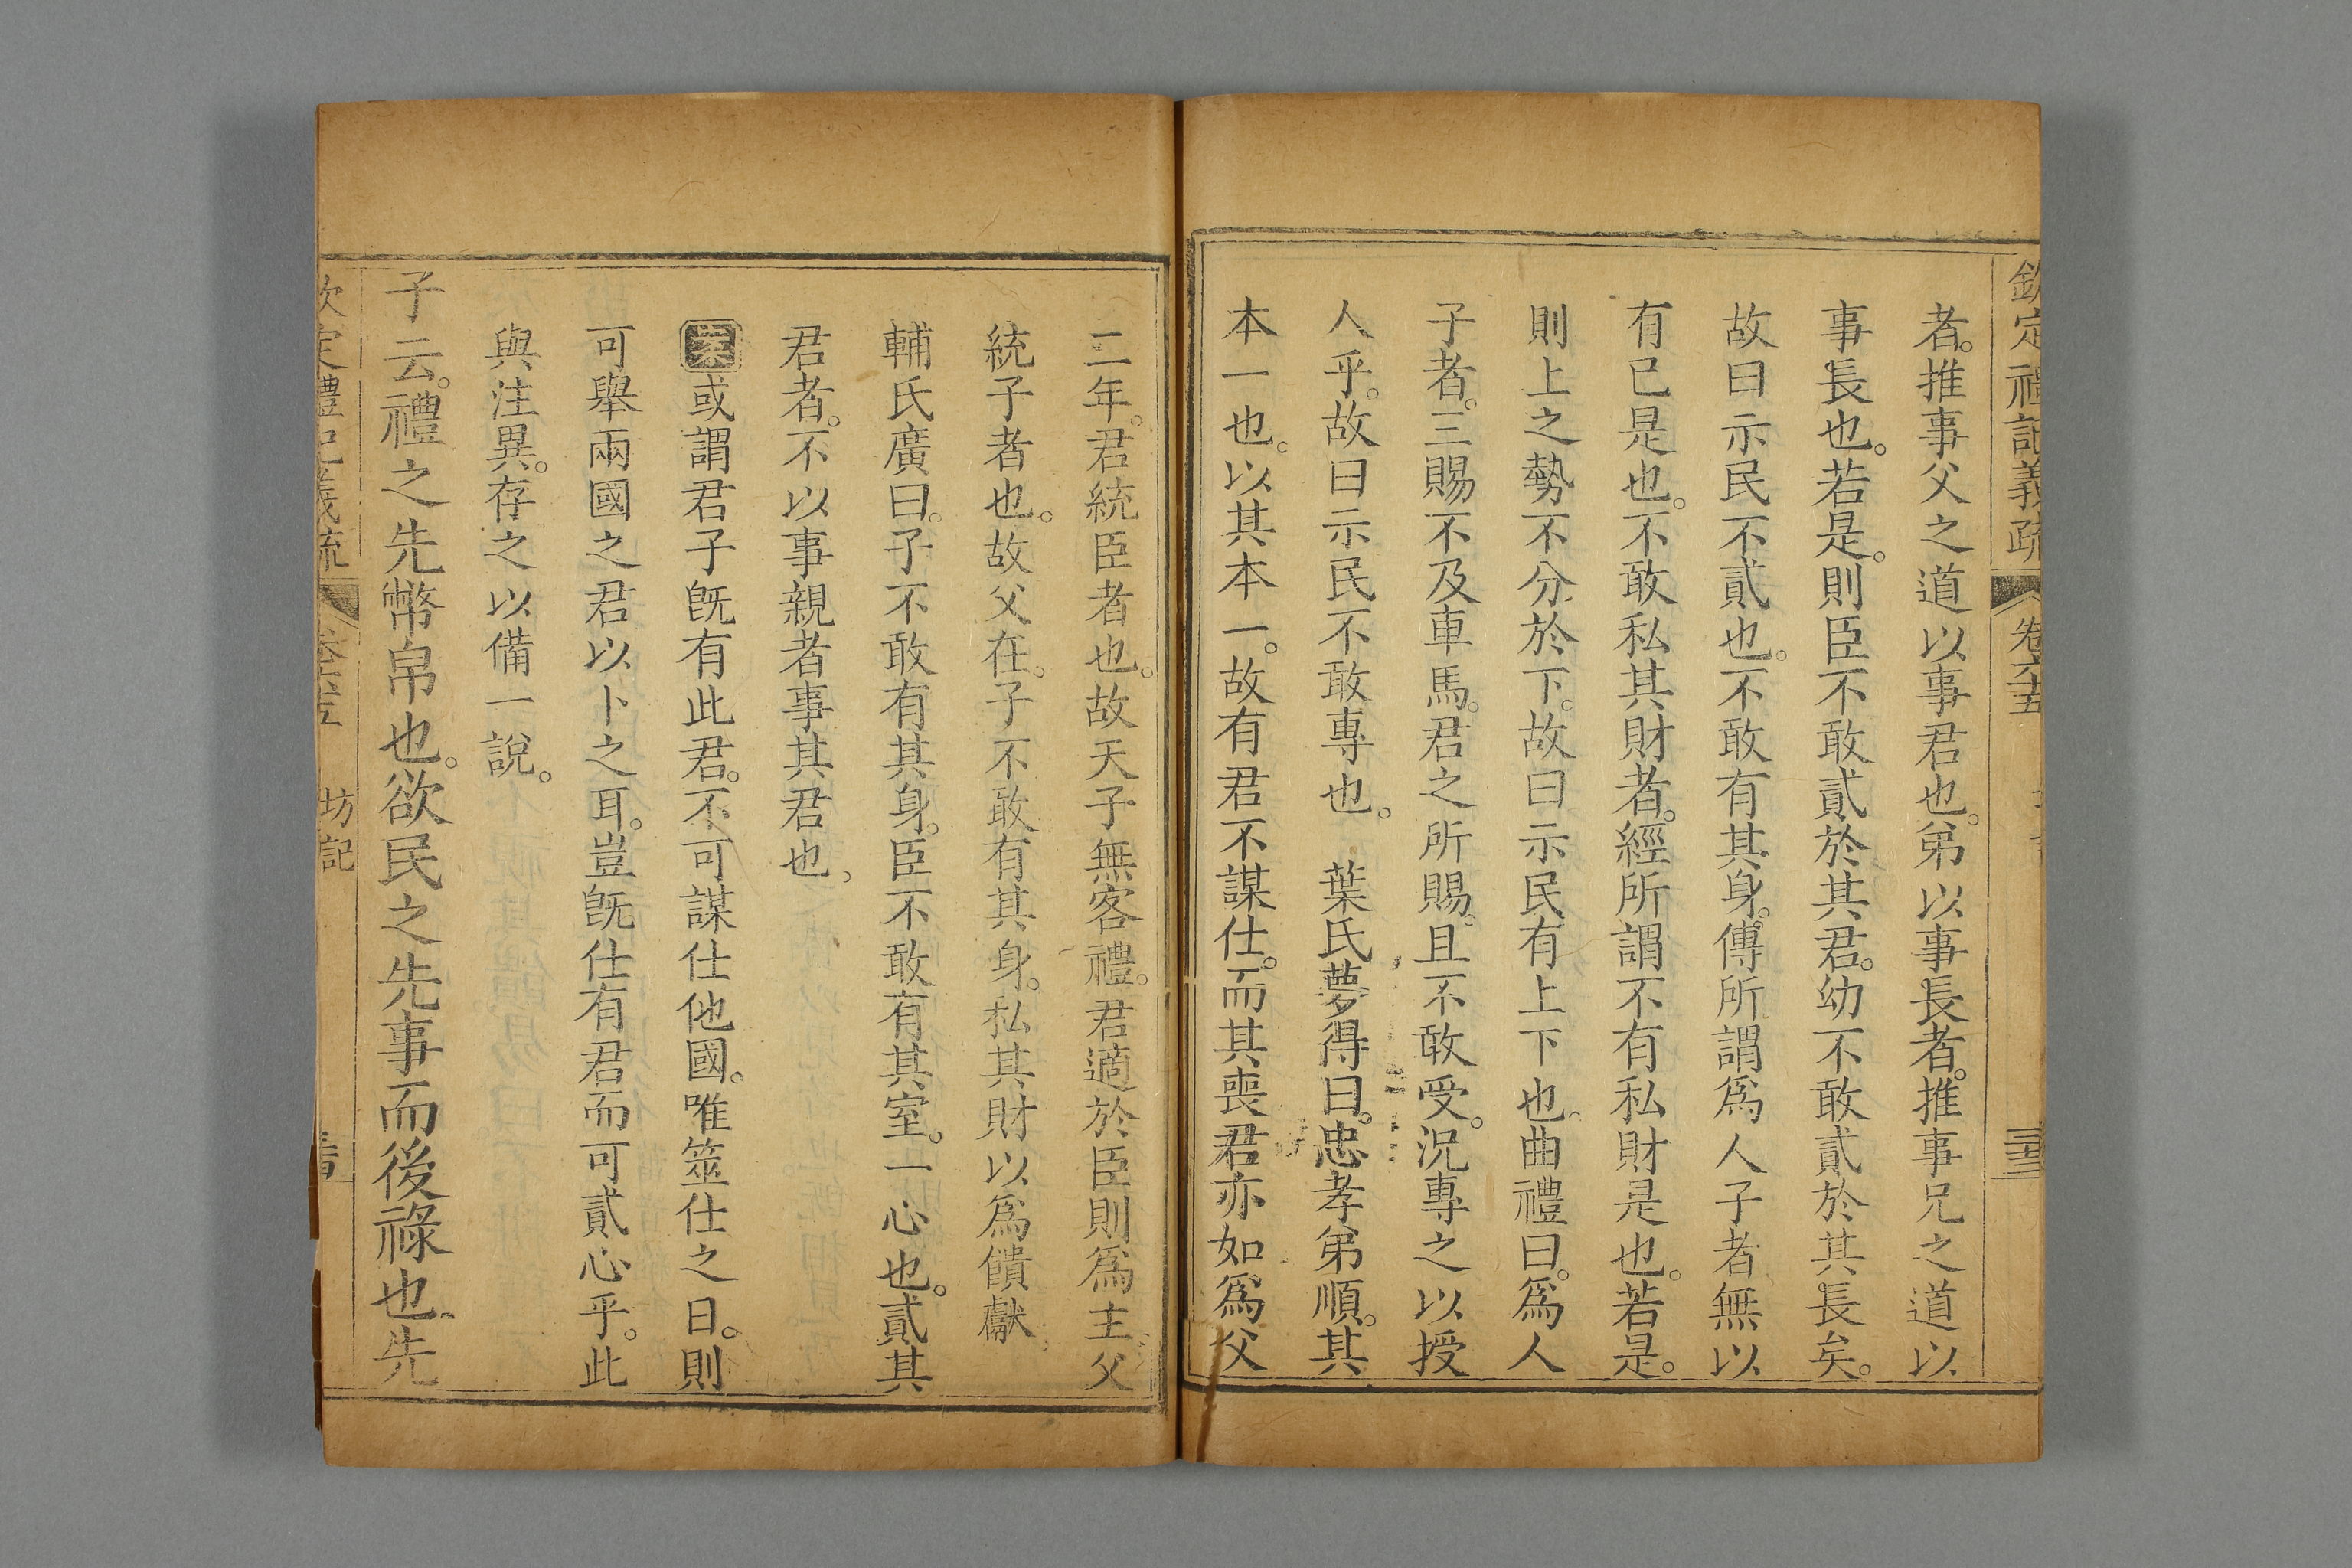 欽定禮記義疏 卷六十五
者。推事父之道以事君也。弟以事長者。推事兄之道以
事長也。若是。則臣不敢貳於其君。幼不敢貳於其長矣。
故曰示民不貳也。不敢有其身。傳所謂爲人子者無以
有已是也。不敢私其財者。經所謂不有私財是也。若是。
則上之勢不分於下。故曰示民有上下也。曲禮曰。爲人
子者。三賜不及車馬。君之所賜。且不敢受。況專之以授
人乎。故曰示民不敢專也。 葉氏夢得曰。忠孝弟順。其
本一也。以其本一。故有君不謀仕。而其喪君亦如爲父
二年。君統臣者也。故天子無客禮。君適於臣則爲主。父
統子者也。故父在。子不敢有其身。私其財以爲饋獻
輔氏廣曰。子不敢有其身。臣不敢有其室。一心也。貳其
君者。不以事親者事其君也。
案或謂君子旣有此君。不可謀仕他國。唯筮仕之日。則
可舉兩國之君以卜之耳。豈旣仕有君而可貳心乎。此
與注異。存之以備一說。
子云。禮之先幣帛也。欲民之先事而後祿也。先
欽定禮記義疏 卷六十五 坊記